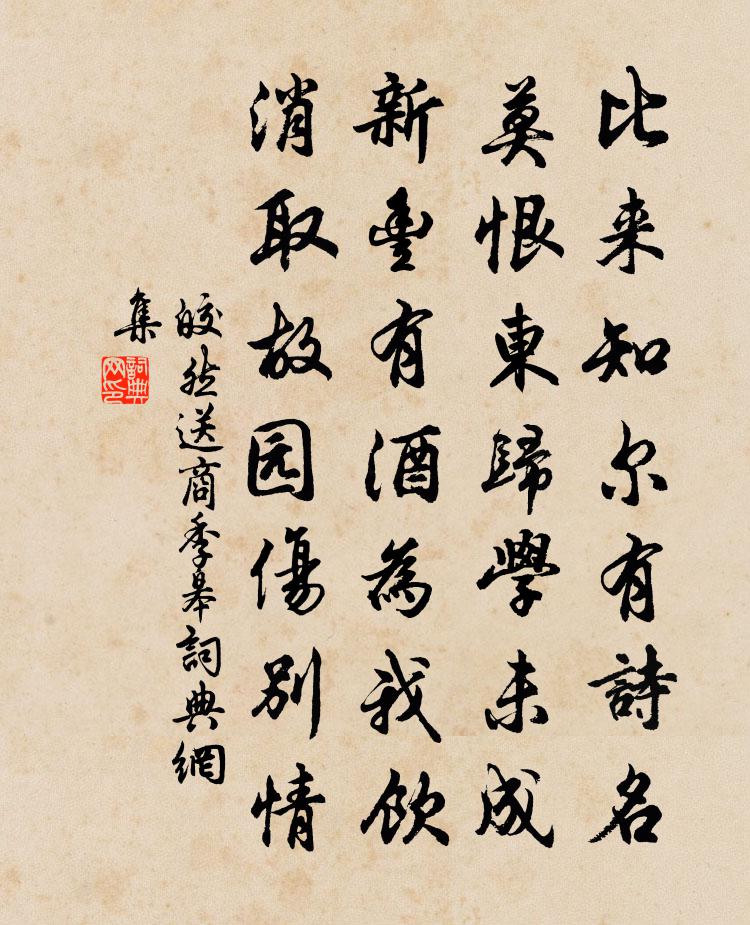 比来知尔有詩名
莫恨東歸學未成
新豐有酒為我飲
消取故园傷別情
皎然送商季皋詞典網
集
詞典
网印